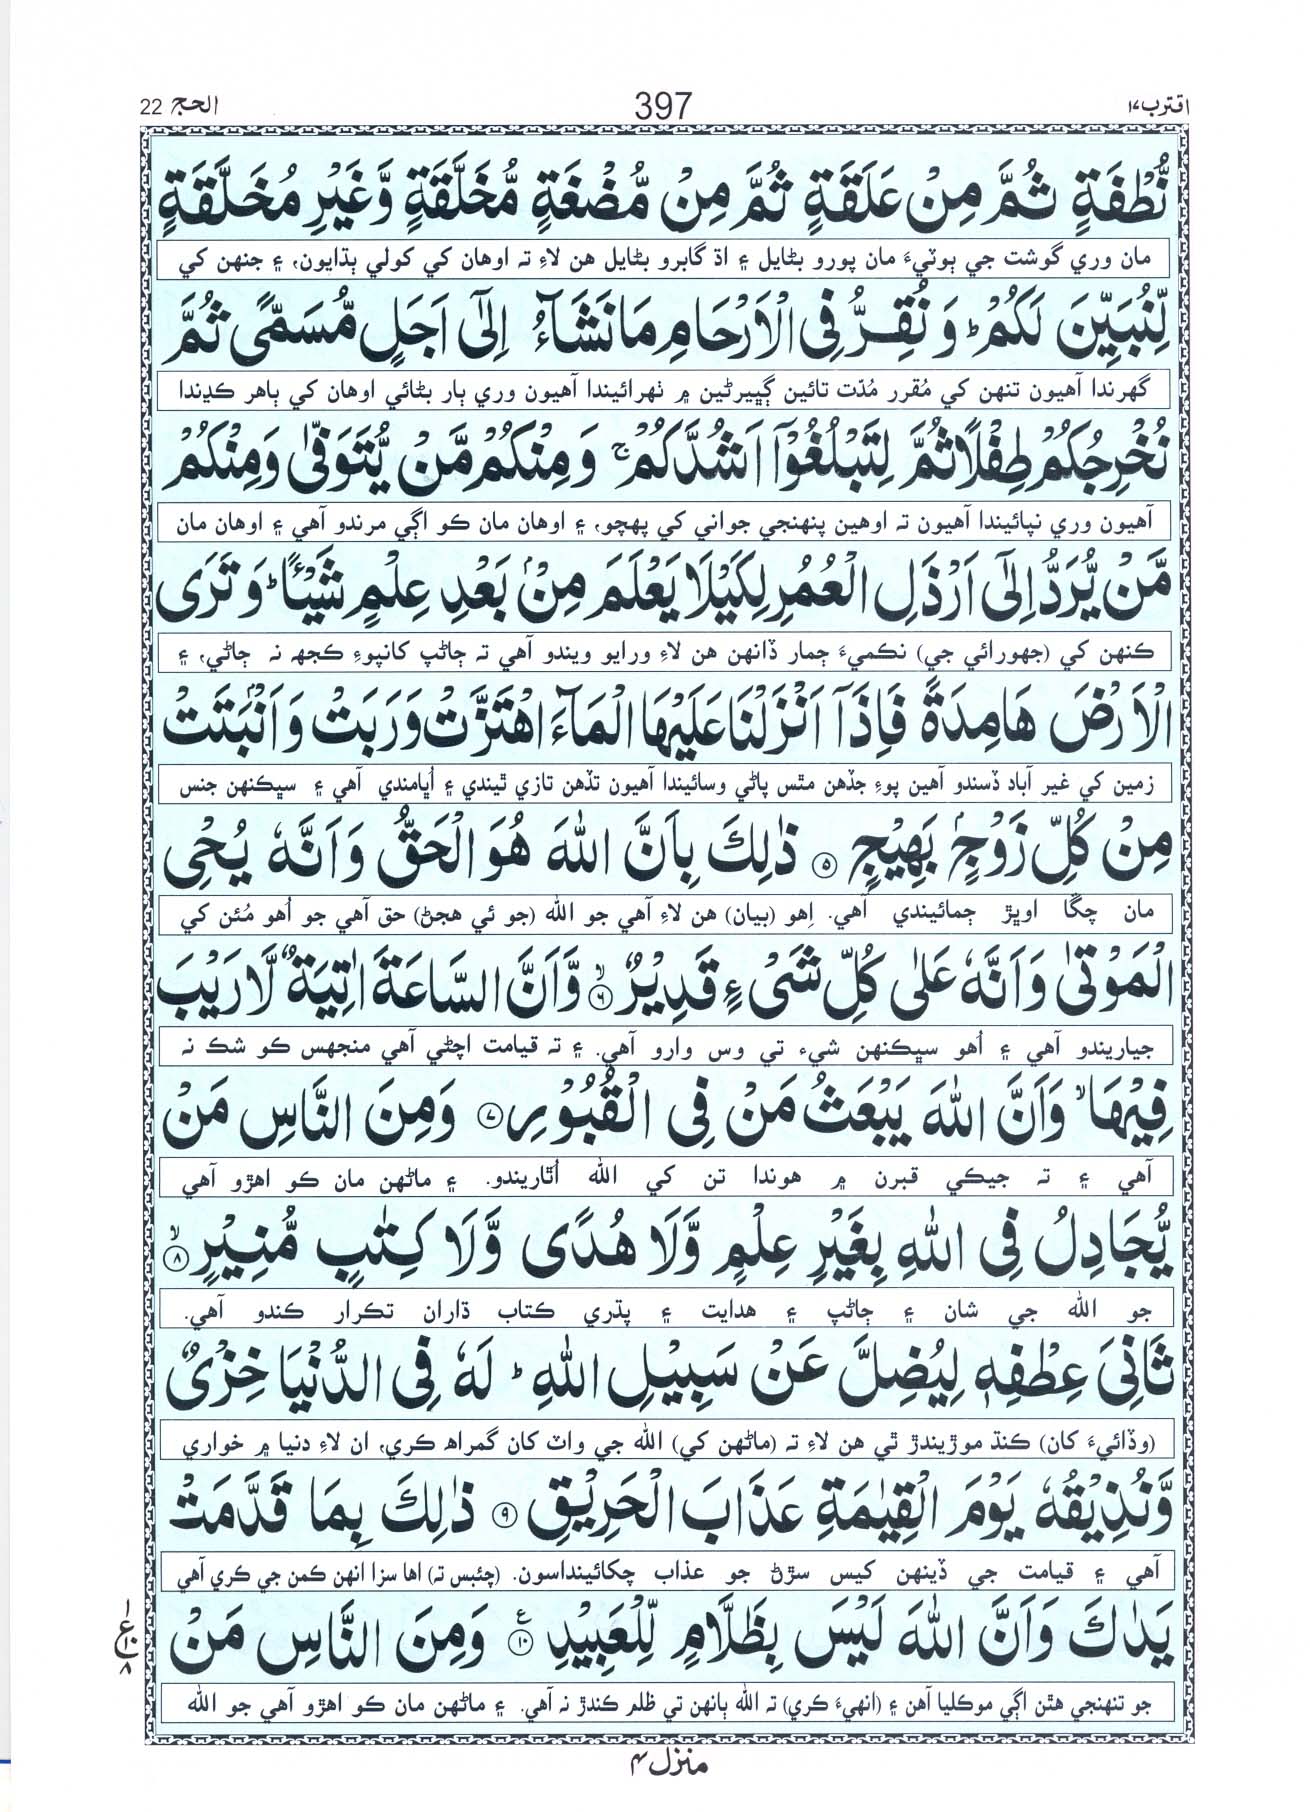 اقترب١٧
397
الحج 22
نُّطْفَةٍ ثُمَّ مِنْ عَلَقَةٍ ثُمَّ مِنْ مُّضْغَةٍ مُّخَلَّقَةٍ وَّغَيْرِ مُخَلَّقَةٍ
مان وري گوشت جي ٻوٽيءَ مان پورو بڻايل ۽ اڌ گابرو بڻايل هن لاءِ ته اوهان کي کولي ٻڌايون، ۽ جنهن کي
لِّنُبَيِّنَ لَكُمْ ؕ وَ نُقِرُّ فِى الْاَرْحَامِ مَا نَشَآءُ اِلٰٓى اَجَلٍ مُّسَمًّى ثُمَّ
گهرندا آهيون تنهن کي مُقرر مُدّت تائين ڳڀيرڻين ۾ ٺهرائيندا آهيون وري ٻار بڻائي اوهان کي ٻاهر ڪڍندا
نُخْرِجُكُمْ طِفْلًا ثُمَّ لِتَبْلُغُوْٓا اَشُدَّكُمْ ۚ وَ مِنْكُمْ مَّنْ يُّتَوَفّٰى وَمِنْكُمْ
آهيون وري نپائيندا آهيون ته اوهين پنهنجي جواني کي پهچو، ۽ اوهان مان ڪو اڳي مرندو آهي ۽ اوهان مان
مَّنْ يُّرَدُّ اِلٰٓى اَرْذَلِ الْعُمُرِ لِكَيْلَا يَعْلَمَ مِنْۢ بَعْدِ عِلْمٍ شَيْـًٔا ؕ وَ تَرَى
ڪنهن کي (جهورائي جي) نڪميءَ ڄمار ڏانهن هن لاءِ ورايو ويندو آهي ته ڄاڻپ کانپوءِ ڪجهہ نہ ڄاڻي، ۽
الْاَرْضَ هَامِدَةً فَاِذَآ اَنْزَلْنَا عَلَيْهَا الْمَآءَ اهْتَزَّتْ وَرَبَتْ وَ اَنْۢبَتَتْ
زمين کي غير آباد ڏسندو آهين پوءِ جڏهن مٿس پاڻي وسائيندا آهيون تڏهن تازي ٿيندي ۽ اُڀامندي آهي ۽ سڀڪنهن جنس
مِنْ كُلِّ زَوْجٍۭ بَهِيْجٍ ۝٥ ذٰلِكَ بِاَنَّ اللّٰهَ هُوَ الْحَقُّ وَ اَنَّهٗ يُحْىِ
مان چڱا اوڀڙ ڄمائيندي آهي. اِهو (بيان) هن لاءِ آهي جو الله (جو ئي هجڻ) حق آهي جو اُهو مُئن کي
الْمَوْتٰى وَ اَنَّهٗ عَلٰى كُلِّ شَىْءٍ قَدِيْرٌ ۝٦ۙ وَّ اَنَّ السَّاعَةَ اٰتِيَةٌ لَّا رَيْبَ
جياريندو آهي ۽ اُهو سڀڪنهن شيء تي وس وارو آهي. ۽ ته قيامت اچڻي آهي منجهس ڪو شڪ نہ
فِيْهَا ۙ وَ اَنَّ اللّٰهَ يَبْعَثُ مَنْ فِى الْقُبُوْرِ ۝٧ وَ مِنَ النَّاسِ مَنْ
آهي ۽ ته جيڪي قبرن ۾ هوندا تن کي الله اُٿاريندو. ۽ ماڻهن مان ڪو اهڙو آهي
يُّجَادِلُ فِى اللّٰهِ بِغَيْرِ عِلْمٍ وَّ لَا هُدًى وَّ لَا كِتٰبٍ مُّنِيْرٍ ۝٨ۙ
جو الله جي شان ۽ ڄاڻپ ۽ هدايت ۽ پڌري ڪتاب ڌاران تڪرار ڪندو آهي.
ثَانِىَ عِطْفِهٖ لِيُضِلَّ عَنْ سَبِيْلِ اللّٰهِ ؕ لَهٗ فِى الدُّنْيَا خِزْىٌ
(وڏائيءَ کان) ڪنڌ موڙيندڙ ٿي هن لاءِ ته (ماڻهن کي) الله جي واٽ کان گمراهہ ڪري، ان لاءِ دنيا ۾ خواري
وَّ نُذِيْقُهٗ يَوْمَ الْقِيٰمَةِ عَذَابَ الْحَرِيْقِ ۝٩ ذٰلِكَ بِمَا قَدَّمَتْ
آهي ۽ قيامت جي ڏينهن کيس سڙڻ جو عذاب چکائينداسون. (چئبس ته) اها سزا انهن ڪمن جي ڪري آهي
يَدٰكَ وَ اَنَّ اللّٰهَ لَيْسَ بِظَلَّامٍ لِّلْعَبِيْدِ ۝١٠ۧ وَ مِنَ النَّاسِ مَنْ
جو تنهنجي هٿن اڳي موڪليا آهن ۽ (انهيءَ ڪري) ته الله ٻانهن تي ظلم ڪندڙ نہ آهي. ۽ ماڻهن مان ڪو اهڙو آهي جو الله
١
ع١٠
٨
منزل ۴